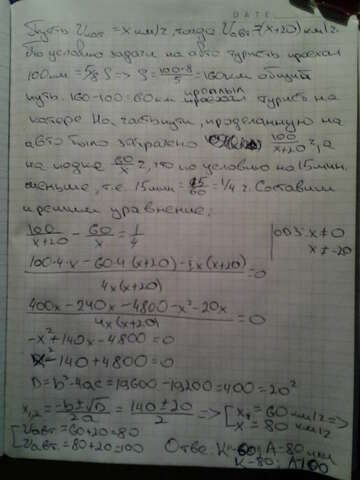 DATE
Пусть Vкат = x км/ч, тогда Vавт = (x+20) км/ч.
По условию задачи на авто турист проехал
100 км = 5/8 S => S = 100·8/5 = 160 км общий
путь. 160-100=60 км проплыл турист на
катере На часть пути, проделанную на
авто было затрачено 100/x+20 ч, а
на лодке 60/x ч, что по условию на 15 мин.
меньше, т.е. 15 мин = 15/60 = 1/4 ч. Составим
и решим уравнение:
100/x+20 - 60/x = 1/4
ОДЗ: x≠0
x≠-20
100·4·x - 60·4(x+20) - x(x+20) / 4x(x+20) = 0
400x - 240x - 4800 - x² - 20x / 4x(x+20) = 0
-x² + 140x - 4800 = 0
x² - 140 + 4800 = 0
D = b² - 4ac = 19600 - 19200 = 400 = 20²
x1,2 = -b ± √D / 2a = 140 ± 20 / 2 => [ x1 = 60 км/ч =>
x = 80 км/ч
[ Vавт. = 60+20 = 80
Vавт. = 80+20 = 100
Ответ: К-60; А-80 или
К-80; А-100